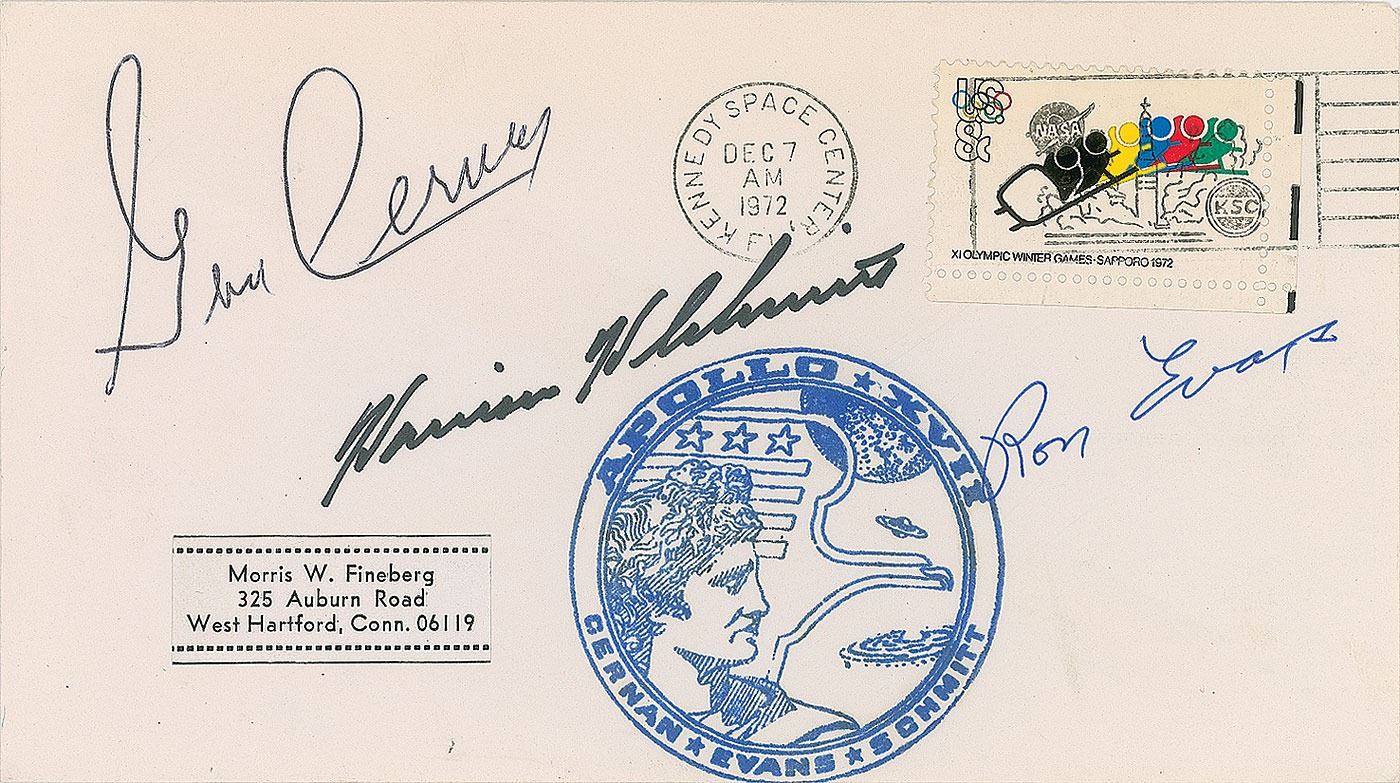 Gene Cernan
KENNEDY SPACE CENTER, FL
DEC 7
AM
1972
US
8c
NASA
KSC
XI OLYMPIC WINTER GAMES·SAPPORO 1972
Harrison H Schmitt
Ron Evans
APOLLO ★ XVII
CERNAN ★ EVANS ★ SCHMITT
Morris W. Fineberg
325 Auburn Road
West Hartford, Conn. 06119